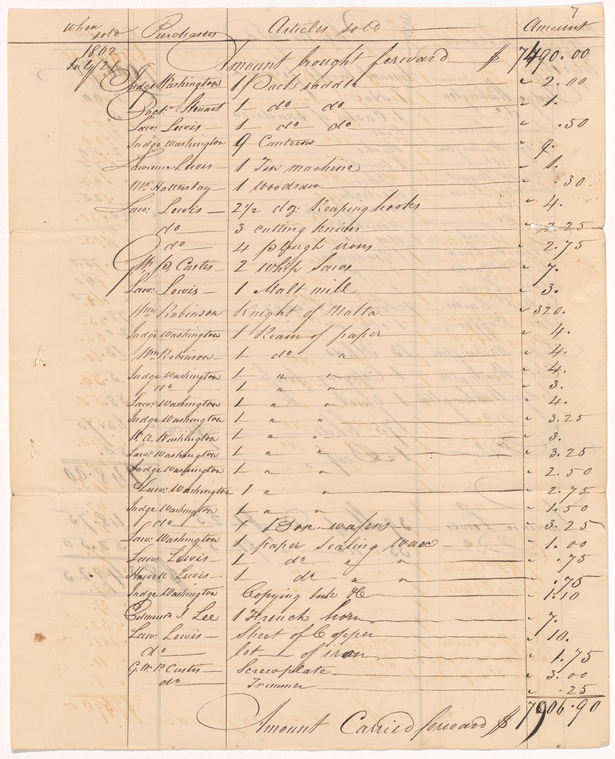 7
When sold Purchasers Articles sold Amount
1802
July 21 Amount brought forward $ 7490.00
Judge Washington 1 Pack saddle " 2.00
Doctr Stewart 1 do do " 1.
Law: Lewis 1 do do " .50
Judge Washington 9 Canteens " 9.
Lawrence Lewis 1 Tin machine " 1.
Mr Hammersley 1 woodsaw " .30
Law: Lewis 2 1/2 doz: Reaping hooks " 4.
do 3 cutting knives " 2.25
do 4 plough irons " 2.75
W. P. Custis 2 Whip Saws " 7.
Law: Lewis 1 Malt mill " 3.
Wm Robinson Knight of Malta " 320.
Judge Washington 1 Ream of paper " 4.
Wm Robinson 1 do " " 4.
Judge Washington 1 " " " 4.
do 1 " " " 3.
Law: Washington 1 " " " 4.
Judge Washington 1 " " " 3.25
Washington 1 " " " 3.
Law: Washington 1 " " " 3.25
Judge Washington 1 " " " 2.50
Law: Washington 1 " " " 2.75
Judge Washington 1 " " " 1.50
do 1 Box wafers " 3.25
Law: Washington 1 paper Sealing Wax " 1.00
Law: Lewis 1 do " " " .75
Howell Lewis 1 do " " " .75
Judge Washington Copying Ink &c " 1.10
Edmund J. Lee 1 French horn " 7.
Law: Lewis Sheet of Copper " 10.
do lot of iron " 1.75
G. W. P. Custis Screwplate " 3.00
do Trimmer " .25
Amount Carried forward $ 7906.90